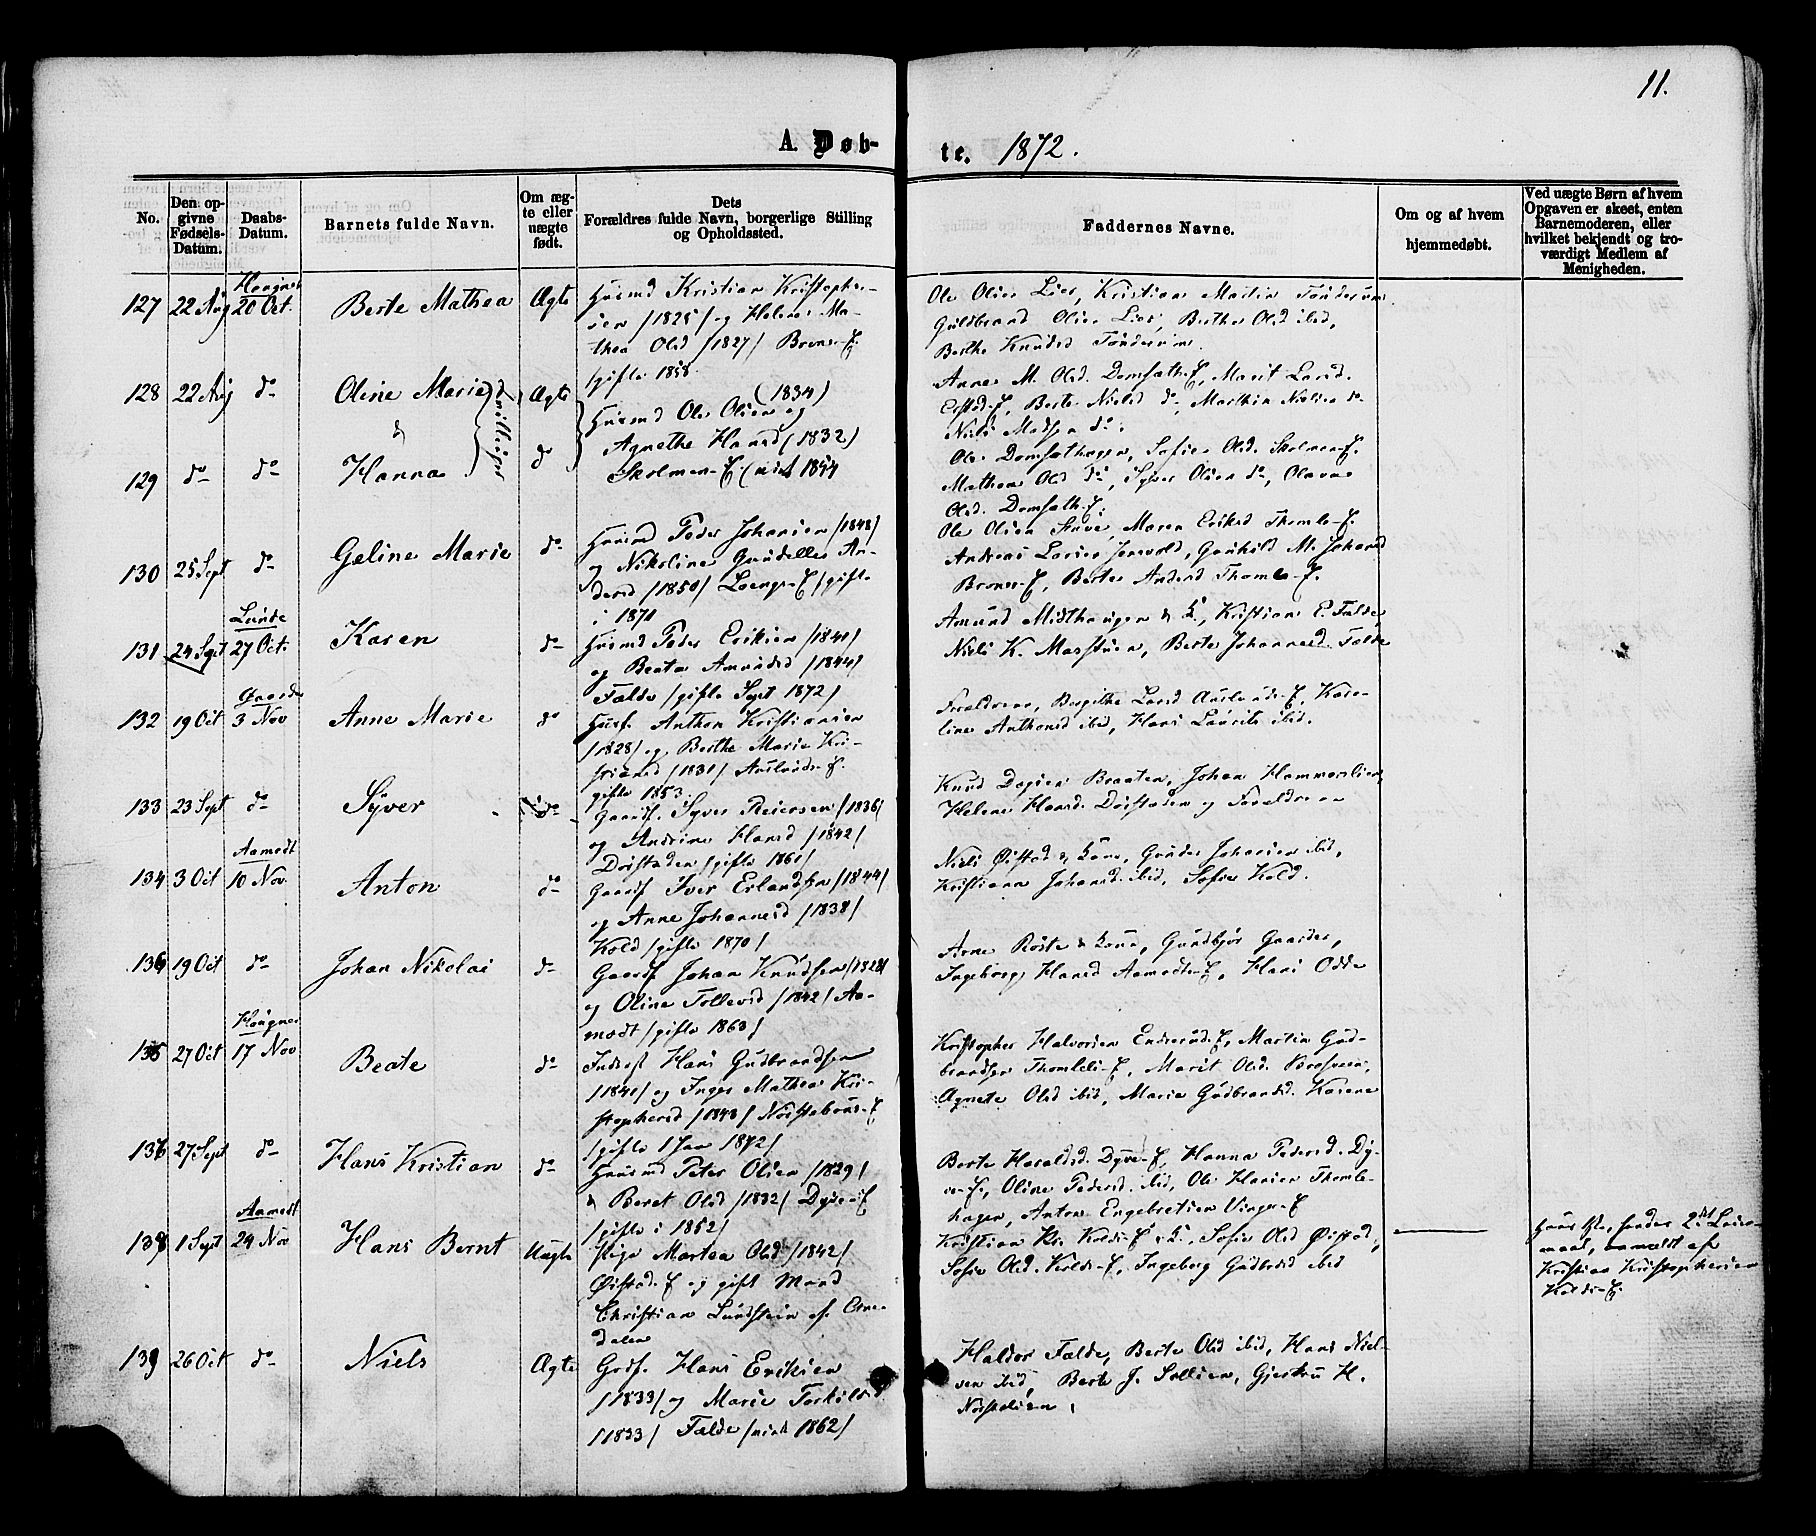 11.
A. Døb-
te. 1872.
No.
Den op-
givne
Fødsels-
Datum.
Daabs-
Datum.
Barnets fulde Navn.
Om æg-
te eller
uægte
født.
Dets
Forældres fulde Navn, borgerlige Stilling
og Opholdssted.
Faddernes Navne.
Om og af hvem
hjemmedøbt.
Ved uægte Børn af hvem
Opgaven er skeet, enten
Barnemoderen, eller
hvilket bekjendt og tro-
værdigt Medlem af
Menigheden.
127 22 Aug 20 Oct. Berte Mathea Ægte
Husmd Kristian Kristopher-
sen /1825/ og Helene Ma-
thea Olsd /1827/ Brones-E.
gifte 1858.
Ole Olsen Lier, Kristian Martin
Guldbrand Olsen Lier, Berthe Olsd ibid,
Berthe Knudsd
128 22 Aug do Oline Marie Ægte
&
129 do do Hanna do
Tvillinger
(1834)
Husmd Ole Olsen og
Agnethe Hansd (1832)
Skolmen-E. 1854
Anne M. Olsd. Domsath-E, Marit Larsd.
Berte Nielsd do, Marthin Nielsen do
Niels Madsen do.
Ole Domsathagen, Sofie Olsd. Skolmen-E.
Mathea Olsd do, Syver Olsen do, Olava
Olsd. Domsath-E.
130 25 Sept do Geline Marie do
Husmd Peder Johansen /1848/
og Nikoline Gundelle An-
dersd /1850/ Loenge-E /gifte
i 1871
Ole Olsen Stuve, Maren Eriksd Thomle-E.
Andreas Larsen Jenvold, Gunhild M. Johansd
Brones-E, Berte Andersd Thomle-E.
Lunde
131 24 Sept 27 Oct. Karen do
Husmd Peder Eriksen /1841/
og Beate Amundsd /1844/
Falde /gifte Sept 1872/
Amund Midthaugen & K., Kristian E. Falde,
Niels K. Berte Johannesd. Falde
Gaarder
132 19 Oct 3 Nov Anne Marie do
Husf. Anthon Kristiansen
/1828/ og Berthe Marie Kri-
stiansd /1831/ Auslunds-E.
gifte 1853.
Forældrene, Birgithe Larsd Auslunds-E, Kare-
line Anthonsd ibid, Hans Laurits ibid.
133 23 Sept do Syver do
Gaardf. Syver Reiersen /1836/
og Andrine Hansd /1842/
Døistaden /gifte 1861/
Knud Braaten, Johan Hammerslien,
Helene Hansd. Døistaden og Forældrene
Aamodt
134 3 Oct 10 Nov. Anton do
Gaardf. Iver Erlandsen /1844/
og Anne Johannesd /1838/
Kold /gifte 1870/
Niels Øistad & Kone, Gunder Johansen ibid,
Kristiana Johansd. ibid, Sofie Kold.
136 19 Oct do Johan Nikolai do
Gaardf. Johan Knudsen /1828/
og Oline Tollevsd /1842/ Aa-
modt /gifte 1863/
Arne Røste & Kone, Gundbjør Gaarder,
Ingeborg Hansd Aamodts-E, Hans Odde
Haugner
135 27 Oct 17 Nov Beate do
Inderst Hans Gudbrandsen
/1841/ og Inger Mathea Kri-
stophersd /1848/ Nørstebøus-E
/gifte 1 Jan 1872/
Kristopher Halvorsen Enderud-E, Martin Gud-
brandsen Thomle-E, Marit Olsd.
Agnete Olsd ibid, Marie Gudbrandsd. Karene
137 27 Sept do Hans Kristian do
Husmd Peter Olsen /1829/
& Beret Olsd /1832/ Dyve-E
/gifte i 1852/
Berte Haralsd. Dyve-E, Hanna Pedersd. Dy-
ve-E., Oline Pedersd. ibid, Ole Hansen Thomle-
hagen, Anton Engebretsen Vinger-E
Aamodt
138 1 Sept 24 Nov Hans Bernt Uægte
Pige Martea Olsd /1842/
Øistad-E og gift Mand
Christian Lundstein af
dalen
Kristian Kr. Kolds-E & K., Sofie Olsd Øistad,
Sofie Olsd. Kolds-E, Ingeborg Gudbrsd ibid
2det Leier-
maal, anmeldt af
Kristian Kristophersen
Kolds-E.
139 26 Oct do Niels Ægte
Grdf. Hans Eriksen
/1833/ og Marie Torkilsd
/1833/ Falde /viet 1862/
Haldor Falde, Berte Olsd ibid, Hans Niel-
sen ibid, Berte J. Sollien, Gjertru H.